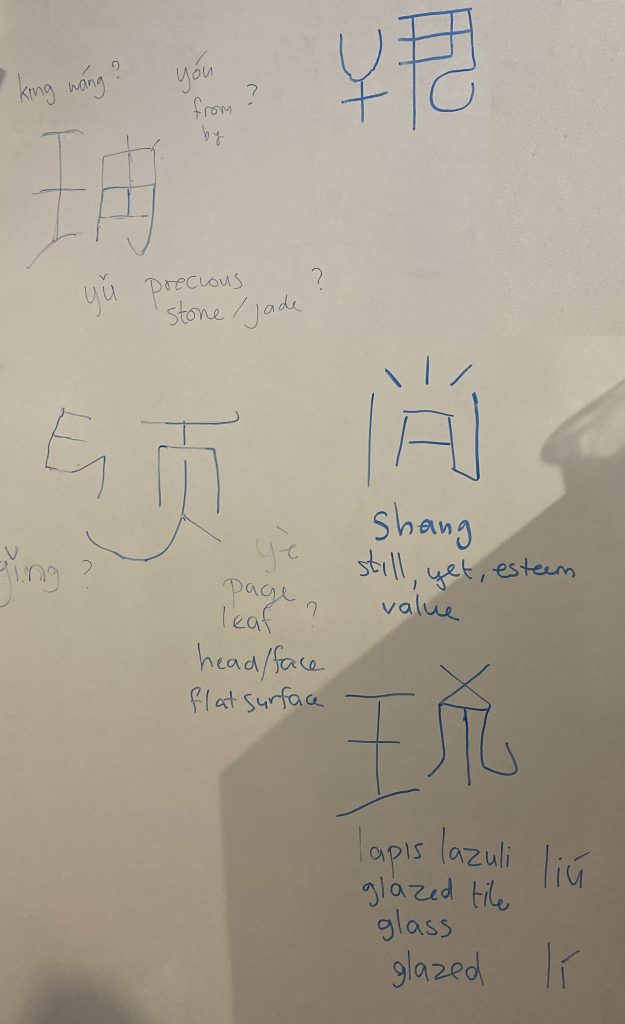 king wáng?
yóu
from ?
by
yǔ precious ?
stone/jade
尚
Shang
still, yet, esteem
value
yè
page
leaf ?
head/face
flat surface
lapis lazuli liú
glazed tile
glass
glazed lí